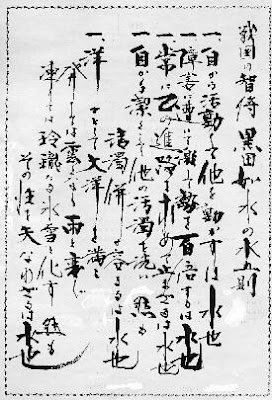 戦国の智将 黒田如水の水五則
一、自から活動して他を動かすは水也
一、障害に逢いて激し勢を百倍するは水也
一、常に己の進路を求めて止まざるは水也
一、自から潔くして他の汚濁を洗い然も
清濁併せ容るるは水也
一、洋々として大洋を満し
発しては雲となり雨と変じ
凍しては玲瓏たる氷雪と化す然も
その性を失なわざるは水也